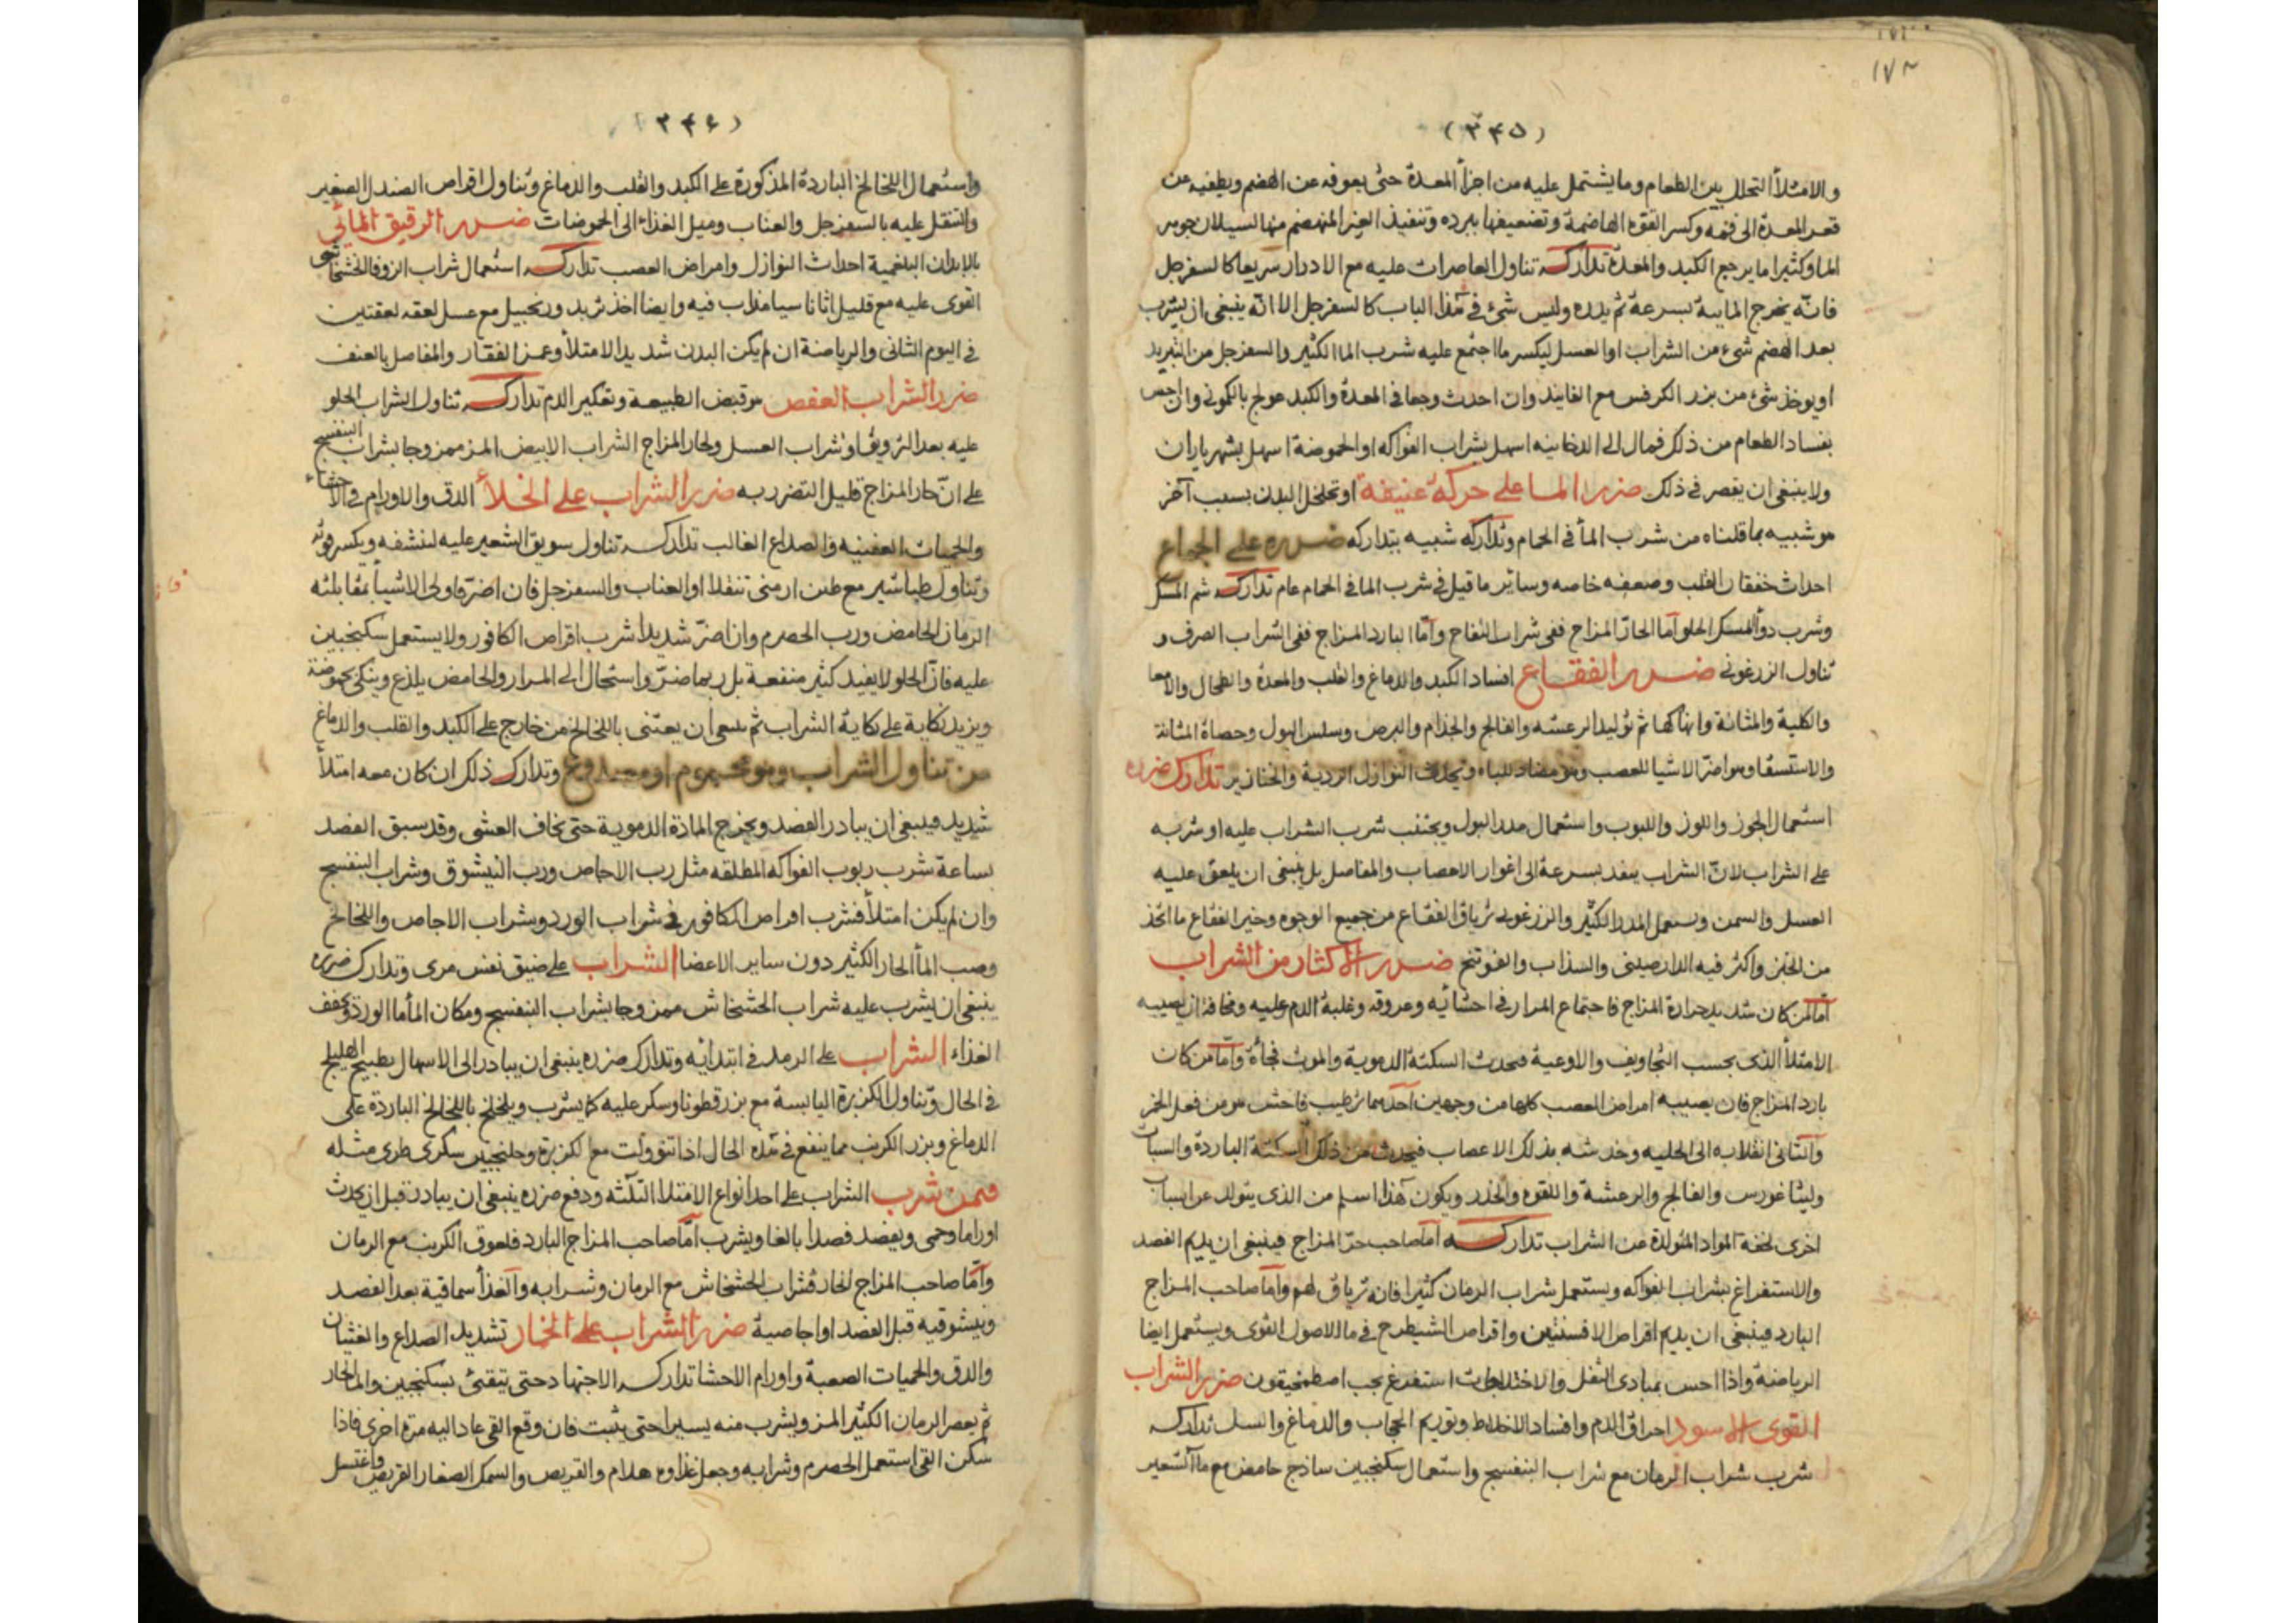 ١٧٢
(٣٤٥)
والامتلأ التحلل بين الطعام وما يشتمل عليه من اجزأ المعدة حتى يعوقه عن الهضم ويطفيه عن
قعر المعدة الى فمه وكسر القوة الهاضمة وتضعيفها ببرده وتنفيذ الغير المنهضم منها لسيلان جوهر
الماء وكثيرا ما يرجع الكبد والمعدة تداركه تناول العاصرات عليه مع الادرار سريعا كالسفرجل
فانه يخرج المايية بسرعة ثم يدره وليس شئ في هذا الباب كالسفرجل الا انه ينبغي ان يشرب
بعد الهضم شئ من الشراب او العسل ليكسر ما اجتمع عليه شرب الما الكثير والسفرجل من التبريد
او يوخذ شئ من بزر الكرفس مع الفانيد وان احدث وجعا في المعدة والكبد عولج بالكموني وان احس
بفساد الطعام من ذلك فمال الى الدخانيه اسهل بشراب الفواكه او الحموضة اسهل بشهرياران
ولا ينبغي ان يقصر في ذلك ضرر الما على حركة عنيفة او تخلخل البدن بسبب آخر
هو شبيه بما قلناه من شرب المأ في الحمام وتداركه شبيه بتداركه ضرره على الجماع
احداث خفقان القلب وضعفه خاصه وساير ما قيل في شرب الما في الحمام عام تداركه شم المسك
وشرب دوأ المسك الحلو أما الحار المزاج ففي شراب التفاح وأما البارد المزاج ففي الشراب الصرف و
تناول الزرعوني ضرر الفقاع افساد الكبد والدماغ والقلب والمعدة والطحال والامعا
والكلية والمثانة وانهاكها ثم توليد الرعشه والفالج والجذام والبرص وسلس البول وحصاة المثانة
والاستسقا وهو اضر الاشيا للعصب وهو مضاد للباه ويحدث النوازل الردية والخنازير تدارك ضرره
استعمال الجوز واللوز واللبوب واستعمال مدر البول ويجتنب شرب الشراب عليه او شربه
على الشراب لان الشراب ينفد بسرعة الى اغوار الاعصاب والمفاصل بل ينبغي ان يلعق عليه
العسل والسمن ويستعمل المدر الكثير والزرعوني ترياق الفقاع من جميع الوجوه وخير الفقاع ما اتخذ
من الخبز واكثر فيه الدارصيني والسذاب والفوتنج ضرر الاكثار من الشراب
أما لمن كان شديد حرارة المزاج فاجتماع المرار في احشائه وعروقه وغلبة الدم عليه ومخافة ان يصيبه
الامتلأ الذى بحسب التجاويف والاوعية فيحدث السكتة الدموية والموت فجأة وأما من كان
بارد المزاج فان يصيبه امراض العصب كلها من وجهين أحدهما ترطيب فاحش هو من فعل الخمر
والثانى انقلابه الى الخليه وخدشه بذلك الاعصاب فيحدث من ذلك السكتة الباردة والسبات
وليثاغورس والفالج والرعشة واللقوه والخدر ويكون هذا اسلم من الذى يتولد عن اسباب
اخرى لخفة المواد المتولدة عن الشراب تداركه أما صاحب حر المزاج فينبغي ان يديم الفصد
والاستفراغ بشراب الفواكه ويستعمل شراب الرمان كثيرا فانه ترياق لهم وأما صاحب المزاج
البارد فينبغي ان يديم اقراص الافسنتين واقراص الشيطرج في ما الاصول القوى ويستعمل ايضا
الرياضة واذا احس بمبادى الثقل والاختلاجات استفرغ بحب اصطمخيقون ضرر الشراب
القوى الاسود احراق الدم وافساد الاخلاط وتوريم الحجاب والدماغ والسل تداركه
شرب شراب الرمان مع شراب البنفسج واستعمال سكنجبين ساذج حامض مع ماالشعير
(٣٤٦)
واستعمال اللخالخ الباردة المذكورة على الكبد والقلب والدماغ وتناول اقراص الصندل الصغير
والتنقل عليه بالسفرجل والعناب وميل الغذاء الى الحموضات ضرر الرقيق المائى
بالابدان البلغمية احداث النوازل وامراض العصب تداركه استعمال شراب الزوفا الخشخاشى
القوى عليه مع قليل اثاناسيا مذاب فيه وايضا اخذ تربد وزنجبيل مع عسل لعقه لعقتين
في اليوم الثانى والرياضة ان لم يكن البدن شديد الامتلأ وغمز الفقار والمفاصل بالعنف
ضرر الشراب العفص هو قبض الطبيعة وتعكير الدم تداركه تناول الشراب الحلو
عليه بعد الترويق او شراب العسل ولحار المزاج الشراب الابيض المز ممزوجا بشراب البنفسج
على ان حار المزاج قليل التضرر به ضرر الشراب على الخلأ الدق والاورام في الاحشاء
والحميات العفينيه والصداع الغالب تداركه تناول سويق الشعير عليه لينشفه ويكسر قوته
وتناول طباشير مع طين ارمنى تنقلا او العناب والسفرجل فان اضر فاولى الاشيأ بمقابلته
الرمان الحامض ورب الحصرم وان اضر شديدا شرب اقراص الكافور ولا يستعمل سكنجبين
عليه فان الحلو لا يفيد كثير منفعة بل ربما ضر واستحال الى المرار والحامض يلذع وينكى بحموضة
ويزيد نكاية على نكاية الشراب ثم ينبغى ان يعتنى باللخالخ من خارج على الكبد والقلب والدماغ
من تناول الشراب وهو محموم او مصدوع وتدارك ذلك ان كان معه امتلأ
شديد فينبغى ان يبادر الفصد ويخرج المادة الدموية حتى يخاف الغشى وقد سبق الفصد
بساعة شرب ربوب الفواكه المطلقه مثل رب الاجاص ورب النيشوق وشراب البنفسج
وان لم يكن امتلأ فشرب اقراص الكافور في شراب الورد وبشراب الاجاص واللخالخ
وصب المأ الحار الكثير دون ساير الاعضا الشراب على ضيق نفس مرى وتدارك ضرره
ينبغى ان يشرب عليه شراب الخشخاش ممزوجا بشراب البنفسج ومكان المأ ما الورد ويخفف
الغذاء الشراب على الرمد في ابتدائه وتدارك ضرره ينبغى ان يبادر الى الاسهال بطبيخ الهليلج
في الحال وتناول الكزبرة اليابسة مع بزرقطونا وسكر عليه كما يشرب ويلخلخ باللخالخ الباردة على
الدماغ وبزر الكرنب مما ينفع في هذه الحال اذا تنوولت مع الكزبرة وجلنجبين سكرى طرى مثله
فمن شرب الشراب على احد انواع الامتلا الثلثه ودفع ضرره ينبغى ان يبادر قبل ان يحدث
اوراما وحمى ويفصد فصدا بالغا ويشرب أما صاحب المزاج البارد فلعوق الكرنب مع الرمان
وأما صاحب المزاج الحار فشراب الخشخاش مع الرمان وشرابه والغذأ سماقية بعد الفصد
ونيشوقيه قبل الفصد او اجاصية ضرر الشراب على الخمار تشديد الصداع والغثيان
والدق والحميات الصعبة واورام الاحشا تداركه الاجتهاد حتى يتقئ بسكنجبين والما الحار
ثم يعصر الرمان الكثير المز ويشرب منه يسيرا حتى يثبت فان وقع القى عاد اليه مرة اخرى فاذا
سكن القى استعمل الحصرم وشرابه وجعل غذاوه هلام والقريص والسمك الصغار القريص واغتسل